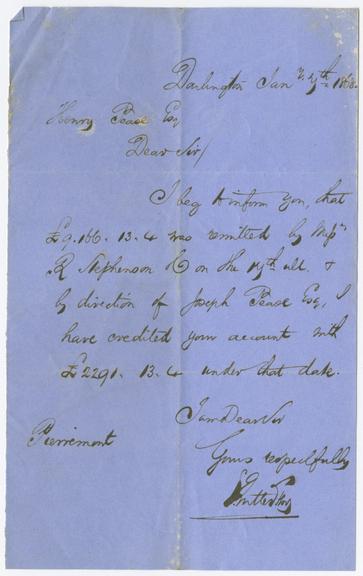 Darlington Jan.y 9th 1868
Henry Pease Esq
Dear Sir/
I beg to inform you, that
£9.166.13.4 was remitted by Messrs
R Stephenson & Co on the 19th ult. &
by direction of Joseph Pease Esq, I
have credited your account with
£2291.13.4 under that date.
I am Dear Sir
Yours respectfully
Pierremont